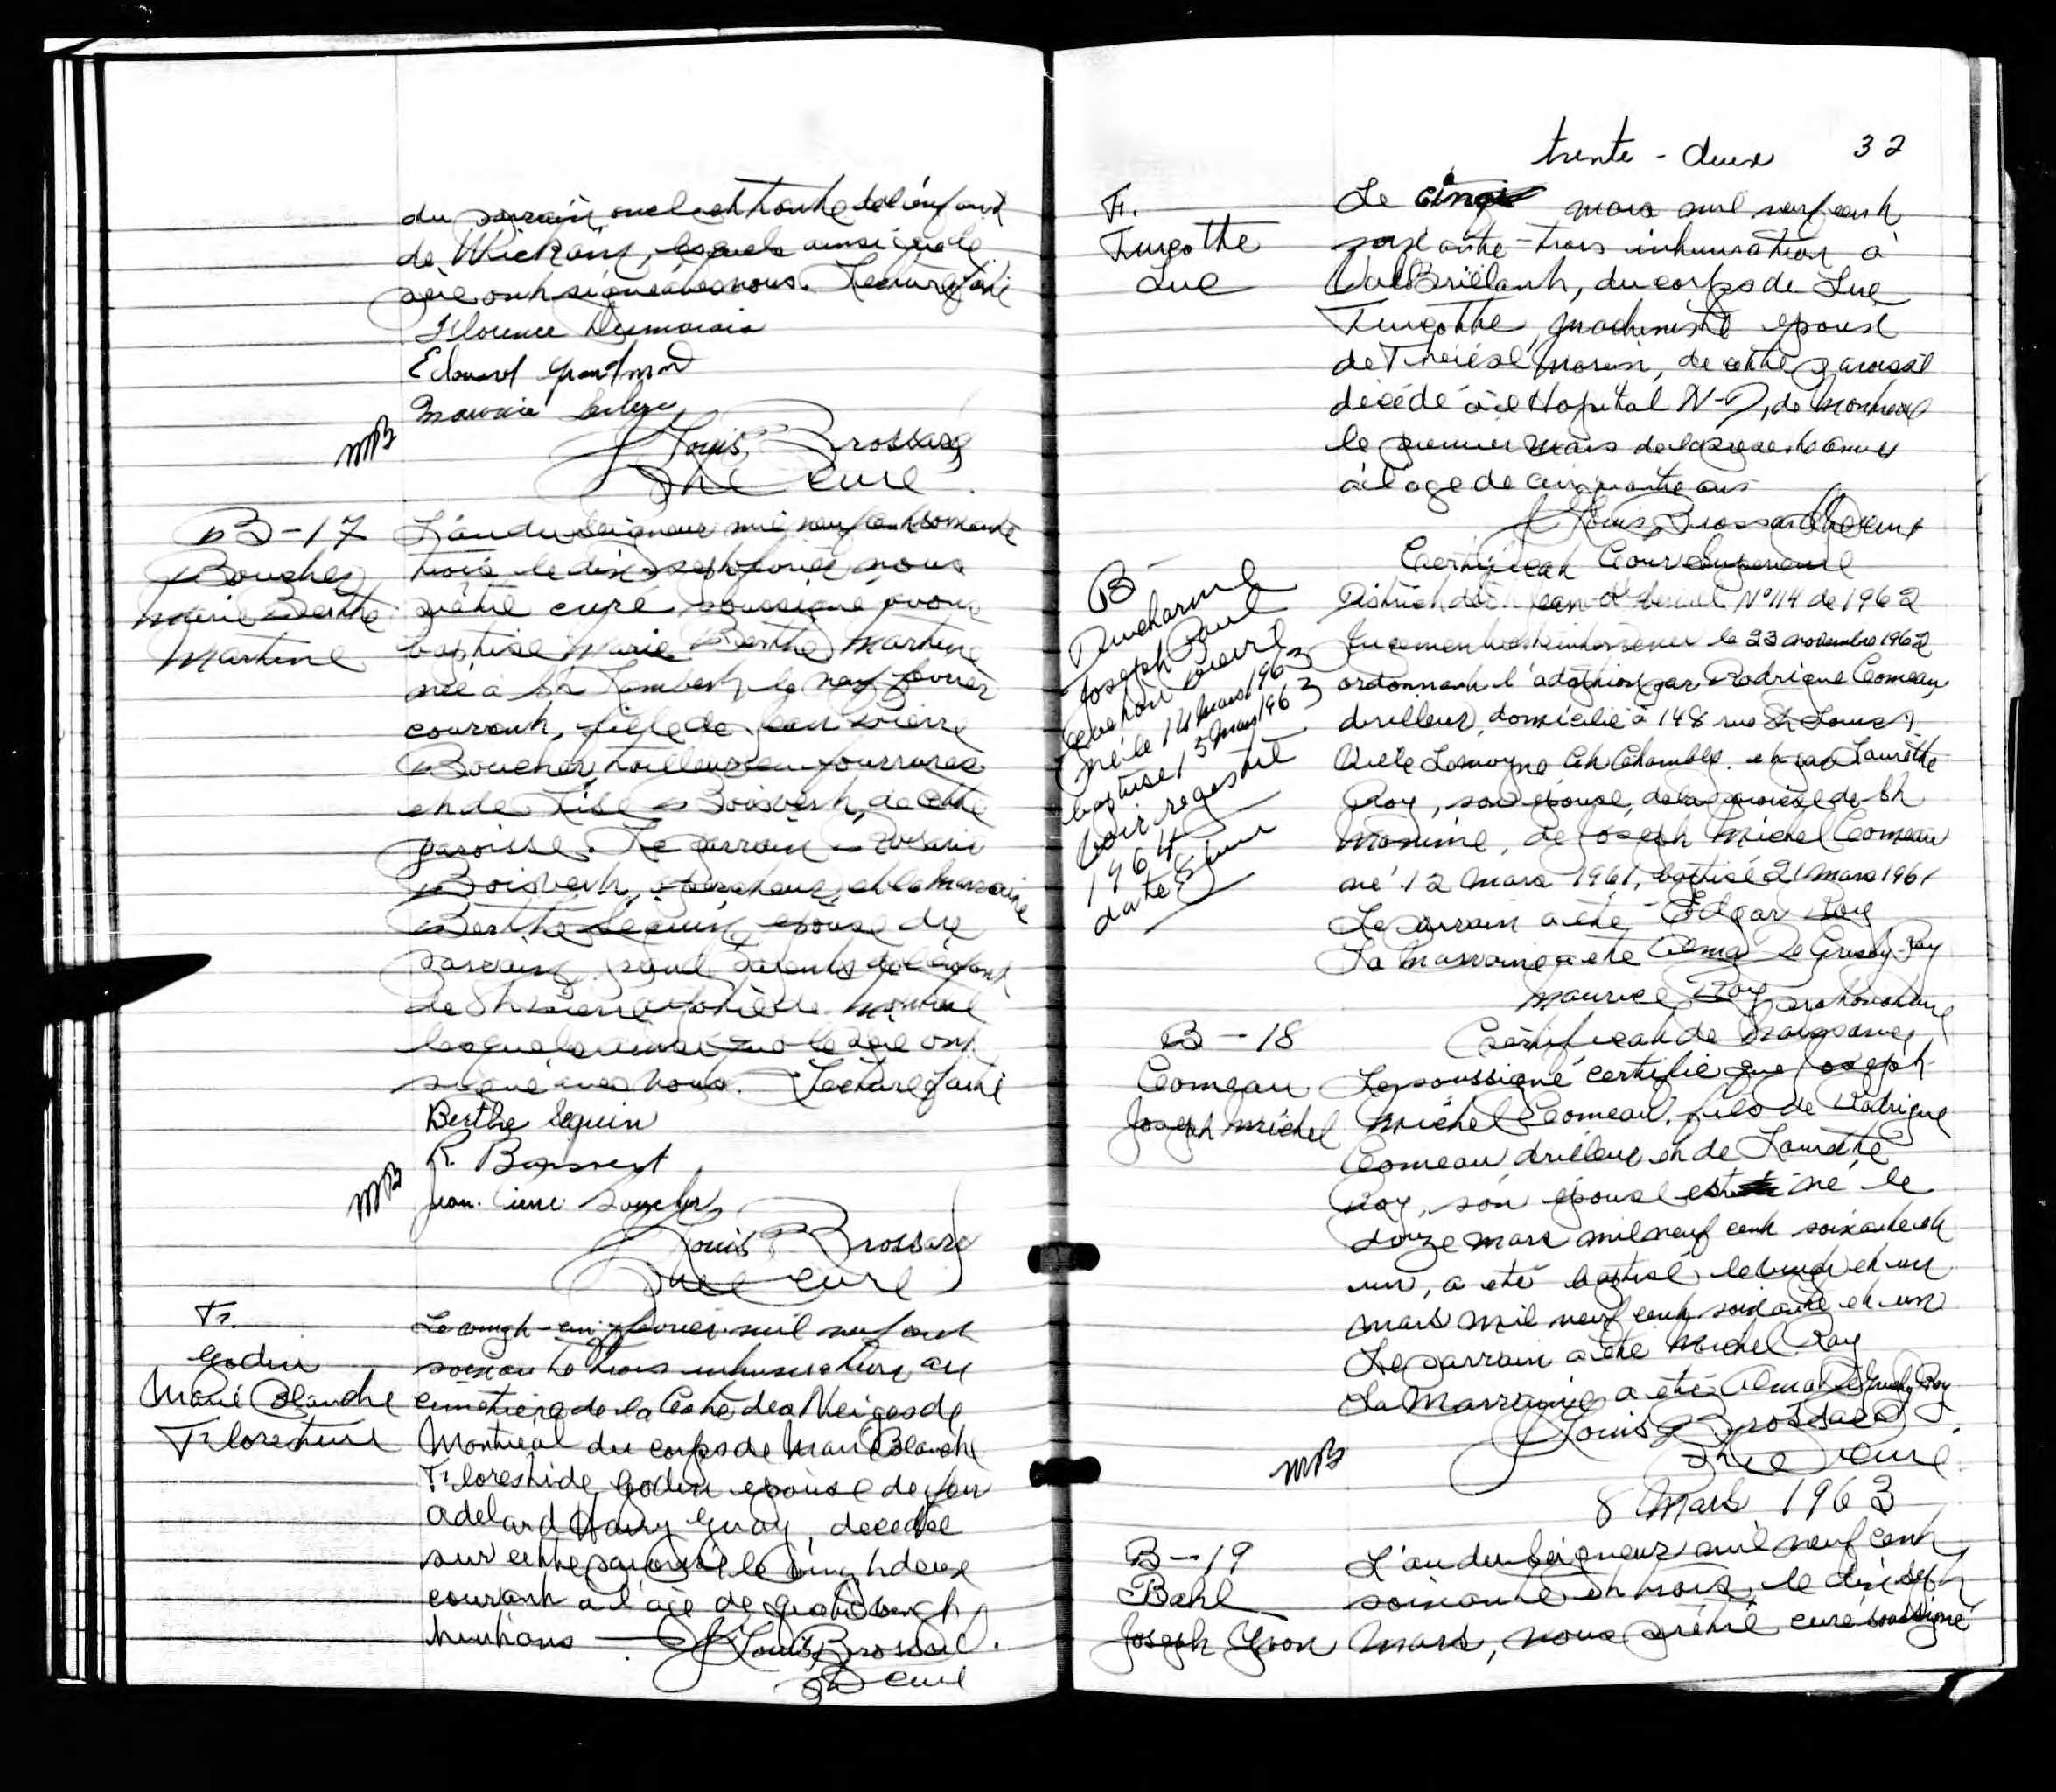 du parrain oncle et tante de l'enfant
de Wickam, lesquels ainsi que le
père ont signé avec nous. Lecture faite
Florence Desmarais
Edouard
Maurice Leclerc
MB
Louis P Brossard
Ptre curé
B-17
Boucher
Marie Berthe
Martine
L'an du Seigneur mil neuf cent soixante
trois le dix sept février nous
prêtre curé soussigné avons
baptisé Marie Berthe Martine
née à St Lambert le neuf février
courant, fille de Jean Pierre
Boucher, tailleur en fourrures
et de Lise Boisvert, de cette
paroisse. Le parrain
Boisvert, et la marraine
Berthe Seguin épouse du
parrain, grand parents de l'enfant
de St Pierre Montréal
lesquels ainsi que le père ont
signé avec nous. Lecture faite
Berthe Seguin
R. Boisvert
Jean-Pierre Boucher
MB
Louis P Brossard
Ptre curé
F.
Godin
Marie Blanche
Florestine
Le vingt-cinq février mil neuf cent
soixante trois inhumation au
cimetière de la Côte des Neiges de
Montréal du corps de Marie Blanche
Godin épouse de feu
Adelard Harry Guay, décédée
sur cette paroisse le vingt deux
courant à l'age de quatre vingt
huit ans
Louis P Brossard
Ptre curé
trente-deux 32
F.
Turgotte
Luc
Le cinq mars mil neuf cent
soixante-trois inhumation à
Val Brillant, du corps de Luc
Turgotte, machiniste époux
de Thérèse Morin, de cette paroisse
décédé à l'Hopital N-D, de Montreal
le premier mars de la présente année
à l'age de cinquante ans
Louis P Brossard Ptre curé
B
Ducharme
Joseph Paul
Pierre
né le 14 mars 1963
baptisé 15 mars 1963
voir registre
1964
date
Certificat Cour Superieure
District de St Jean d'Iberville No 114 de 1962
Jugement est intervenu le 23 novembre 1962
ordonnant l'adoption par Rodrigue Comeau
drilleur, domicilié à 148 rue St Louis,
Ville Lemoyne, Ct Chambly. et par Laurette
Roy, son épouse, de la paroisse de St
Maxime, de Joseph Michel Comeau
né 12 mars 1961, baptisé 21 mars 1961
Le parrain a été Edgar Roy
La Marraine a été Alma De Gruchy-Roy
Maurice Roy
B-18
Comeau
Joseph Michel
Certificat de Naissance
Le soussigné certifie que Joseph
Michel Comeau, fils de Rodrigue
Comeau drilleur et de Laurette
Roy, son épouse est né le
douze mars mil neuf cent soixante et
un, a été baptisé le vingt et un
mars mil neuf cent soixante et un
Le parrain a été Michel Roy
La Marraine a été Alma De Gruchy Roy
Louis P Brossard
Ptre curé.
MB
8 Mars 1963
B-19
Bahl
Joseph Yvon
L'an du Seigneur mil neuf cent
soixante et trois, le dix sept
Mars, nous prêtre curé soussigné